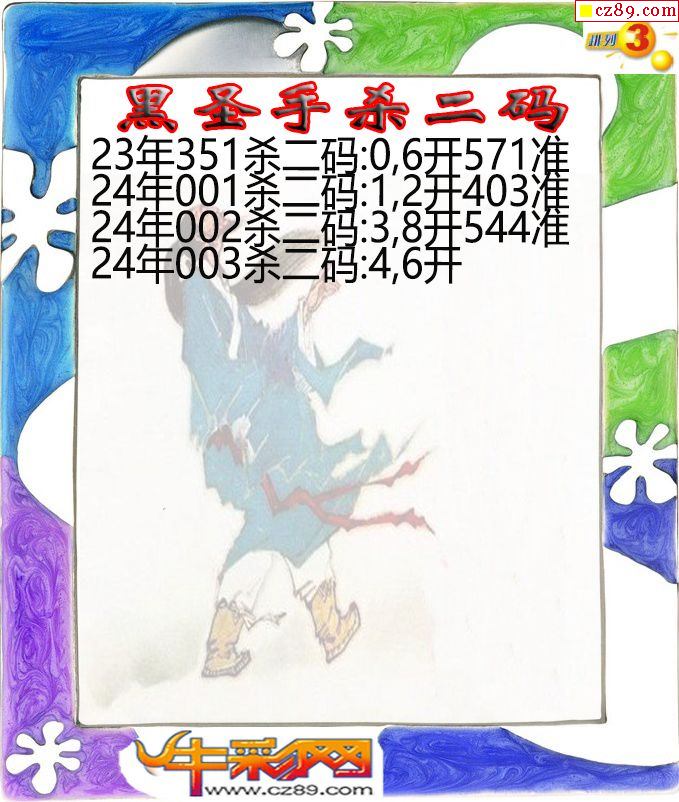 cz89.com
排列3
黑圣手杀二码
23年351杀二码:0,6开571准
24年001杀二码:1,2开403准
24年002杀二码:3,8开544准
24年003杀二码:4,6开
牛彩网
www.cz89.com